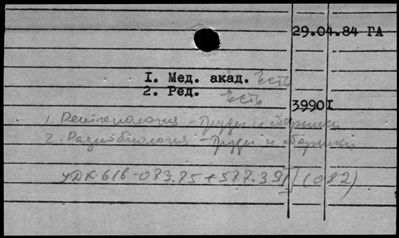 29.04.84 ГА
I. Мед. акад. Есть
2. Ред. Есть
39901
1. Рентгенология - Труды и сборники
2. Радиобиология - Труды и сборники
УДК 616-073.75+577.391](082)